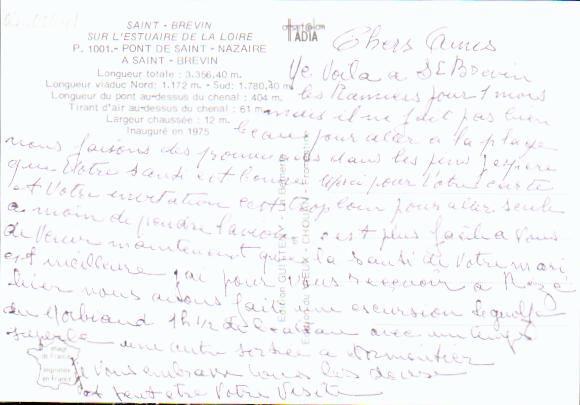 SAINT - BREVIN
SUR L'ESTUAIRE DE LA LOIRE
P. 1001. - PONT DE SAINT - NAZAIRE
A SAINT - BREVIN
Longueur totale : 3.356,40 m.
Longueur viaduc Nord: 1.172 m. - Sud: 1.780,40 m
Longueur du pont au-dessus du chenal : 404 m.
Tirant d'air au-dessus du chenal : 61 m.
Largeur chaussée : 12 m.
Inauguré en 1975
ADIA
Chers Amis
Me Voila a St Brevin
les pour 1 mois
mais il ne fait pas bien
beau pour aller a la plage
nous faisons des promenades dans les pins j'espere
que Votre santé est bonne merci pour Votre carte
et Votre invitation c'est trop loin pour aller seule
a moin de prendre l'avion c'est plus facile a Vous
de Venir maintenant que la santé de Votre mari
est meilleure j'ai pour Vous recevoir a Rezé
hier nous avons faite une excursion le golfe
du Morbiand 1h 1/2 de bateau avec un temps
superbe une autre sortie a Normoutier
je Vous embrasse tous les deux
peut etre Votre Visite
image
de France
imprimé
en France